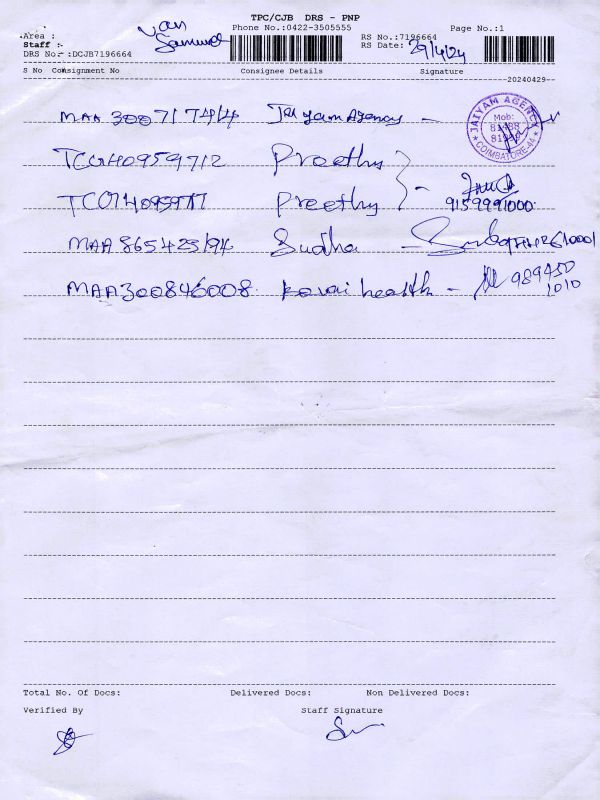 TPC/CJB DRS - PNP
Area : Van Phone No.:0422-3505555 Page No.:1
Staff :- Samuel RS No.:7196664
DRS No.- :DCJB7196664 RS Date: 29/4/24
S No Consignment No Consignee Details Signature
20240429
MAA 300717414 Jaiyam Agency -
JAIYAM AGENCY Mob: COIMBATORE-44
TCG40959712 Preethy
Preethy - 9159991000
MAA 865423194 Sudha
MAA300846008. Kovai health - 989450
1010
Total No. Of Docs: Delivered Docs: Non Delivered Docs:
Verified By Staff Signature